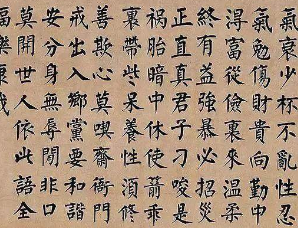 氣衰少杯不亂性忍
氣勉傷財貴向勤中
得富從儉裏來溫柔
終有益強暴必招災
正直真君子刁唆是
禍胎暗中休使箭乖
裏帶些呆養性須修
善欺心莫喫齋衙門
戒出入鄉黨要和諧
安分身無辱閑非口
莫開世人依此語全
福樂康哉